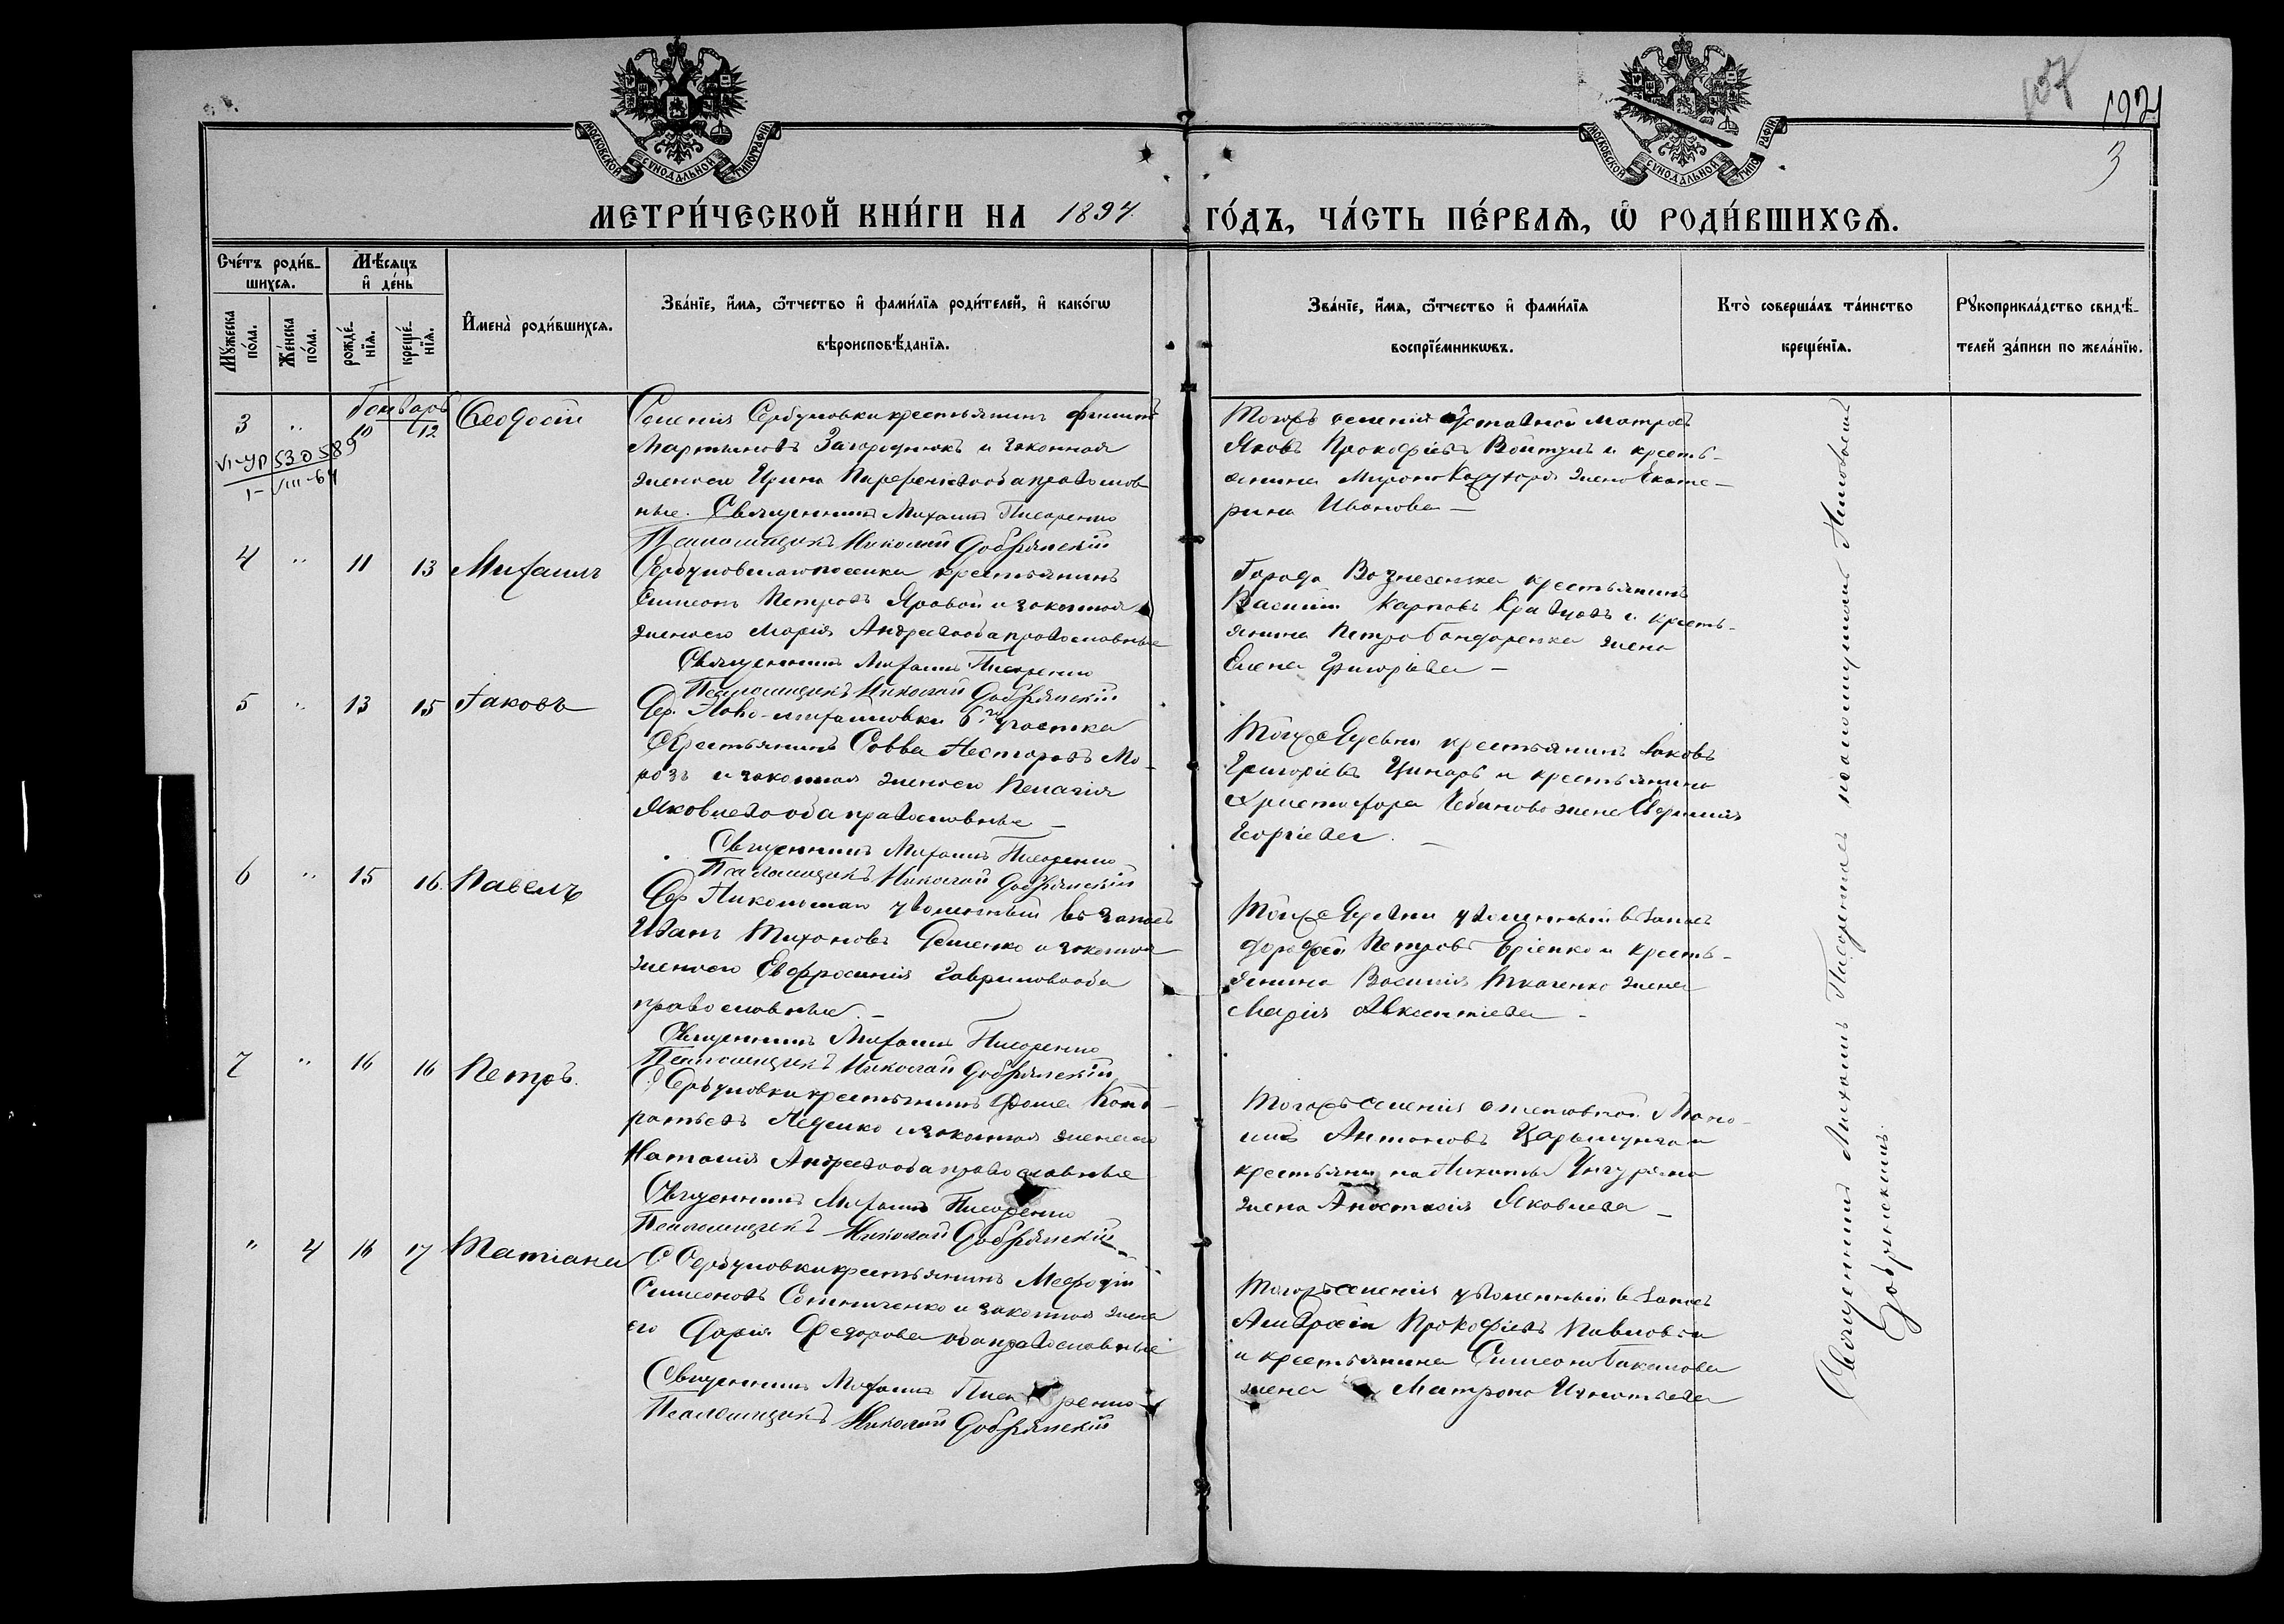 107
1921
3
МОСКОВСКОЙ СѴНОДАЛЬНОЙ ТИПОГРАФІИ
МОСКОВСКОЙ СѴНОДАЛЬНОЙ ТИПОГРАФІИ
МЕТРИ́ЧЕСКОЙ КНИ́ГИ НА 1894 ГО́ДЪ, ЧА́СТЬ ПЕ́РВАѦ, Ѡ҆ РОДИ́ВШИХСѦ.
Сче́тъ роди́в-
шихсѧ.
Мꙋ́жеска по́ла.
Же́нска по́ла.
Мѣ́сѧцъ
и҆ де́нь
рожде́-
нїѧ.
креще́-
нїѧ.
И҆мена̀ роди́вшихсѧ.
Зва́нїе, и҆́мѧ, ѻ҆́тчество и҆ фами́лїѧ роди́телей, и҆ како́гѡ
вѣроисповѣ́данїѧ.
Зва́нїе, и҆́мѧ, ѻ҆́тчество и҆ фами́лїѧ
воспрїе́мникѡвъ.
Кто̀ соверша́лъ та́инство
креще́нїѧ.
Рꙋкоприкла́дство свидѣ́-
телей за́писи по жела́нїю.
Январь
3 " 10 12 Ѳеодосій
VI-УР 530589
1-VIII-64
Селенія Сербуловки крестьянинъ Филипъ
Мартыновъ Загороднюкъ и законная
жена его Ирина Парфеніева оба православ
ные. Священникъ Михаилъ Писаренко
Псаломщикъ Николай Добрянскій
Тогожъ селенія отставной матросъ
Яковъ Прокофіевъ Войтулъ и кресть-
янина Мирона жена Екате-
рина Иванова —
4 " 11 13 Михаилъ
Сербуловскаго поселка крестьянинъ
Симеонъ Петровъ Яровой и законная
жена его Марія Андреева оба православные
Священникъ Михаилъ Писаренко
Псаломщикъ Николай Добрянскій
Города Вознесенска крестьянинъ
Василій Карповъ Кравцовъ и кресть-
янина Петра Бондаренка жена
Елена Григоріева —
5 " 13 15 Іаковъ
Дер. Ново-михайловки 6го участка
Крестьянинъ Савва Несторовъ Мо-
розъ и законная жена его Пелагія
Яковлева оба православные —
Священникъ Михаилъ Писаренко
Псаломщикъ Николай Добрянскій
Тойже Деревни крестьянинъ Іаковъ
Григоріевъ и крестьянина
Христофора жена Евфимія
Георгіева. —
6 " 15 16. Павелъ
Дер. уволенный въ запасъ
Иванъ Тихоновъ и законная
жена его Евфросинія Гаврилова оба
православные. —
Священникъ Михаилъ Писаренко
Псаломщикъ Николай Добрянскій
Тойже Деревни уволенный в запасъ
Дорофей Петровъ и кресть-
янина Василія Ткаченко жена
Марія Авксентіева —
7 " 16 16 Петръ.
С. Сербуловки крестьянинъ Фома Конд-
ратьевъ и законная жена его
Наталія Андреева оба православные
Священникъ Михаилъ Писаренко
Псаломщикъ Николай Добрянскій
Тогожъ селенія
Антоновъ и
крестьянина Никиты жена
Анастасія Яковлева —
" 4 16 17 Татіана
С Сербуловки крестьянинъ Мефодій
Симеоновъ и законная жена
его Дарія Федорова оба православные
Священникъ Михаилъ Писаренко
Псаломщикъ Николай Добрянскій
Тогожъ селенія уволенный в запасъ
Амвросій Прокофіевъ
и крестьянина Симеона Бакалова
жена Матрона Игнатьева
Священникъ Михаилъ Писаренко съ псаломщикомъ Николаемъ
Добрянскимъ.